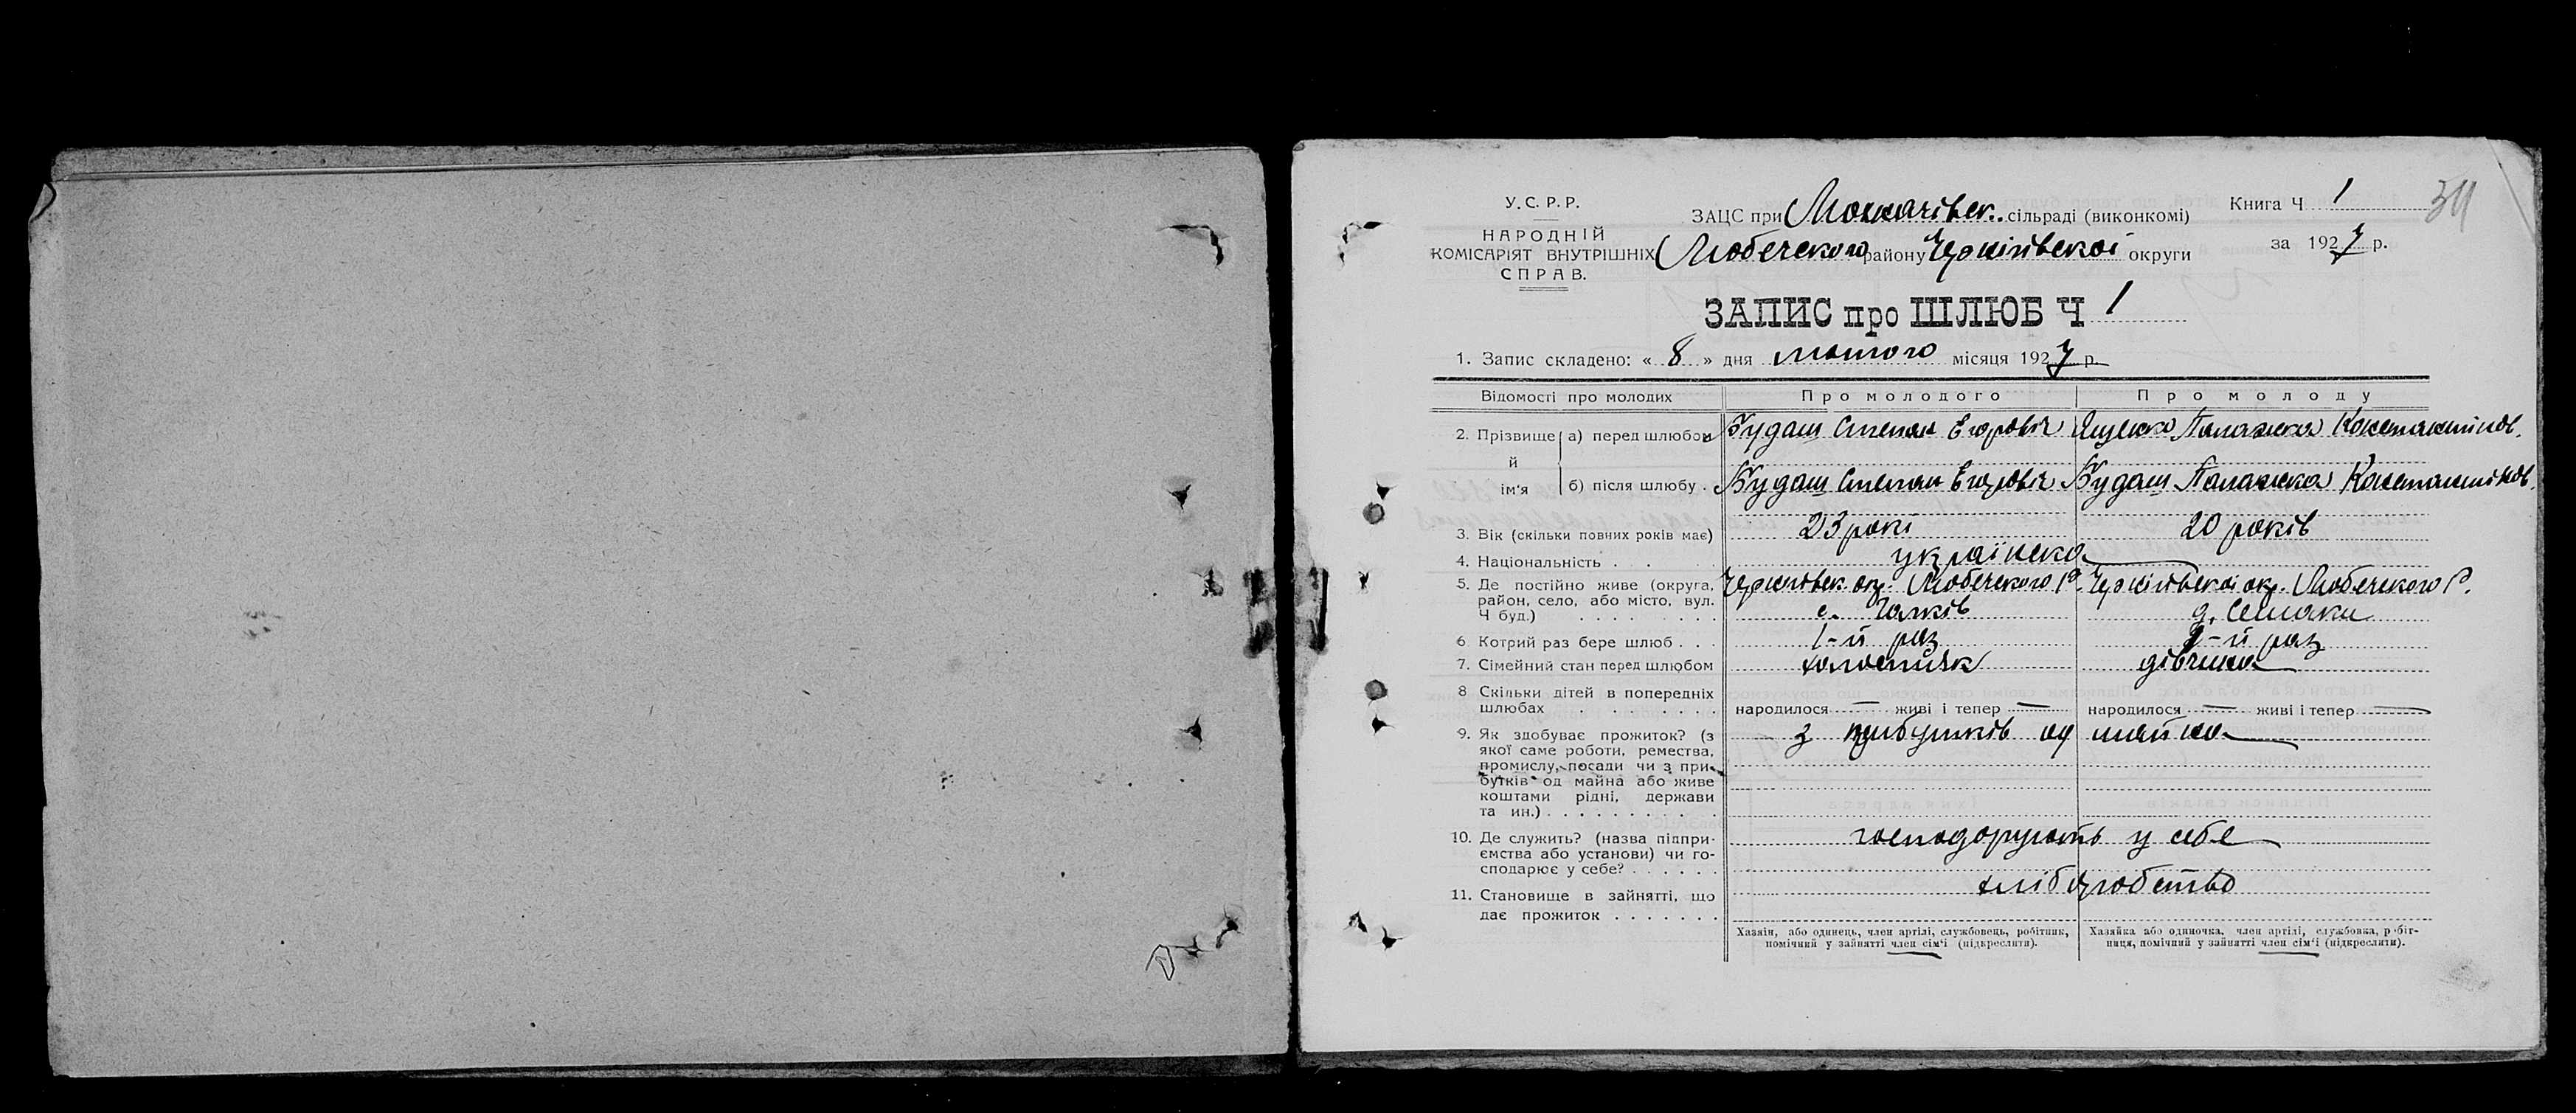 У.С.Р.Р.
НАРОДНІЙ
КОМІСАРІЯТ ВНУТРІШНІХ
СПРАВ.
ЗАЦС при Мохначівськ. сільраді (виконкомі)
Любечского району Чернігівскоі округи
Книга Ч 1
34
за 1927 р.
ЗАПИС про ШЛЮБ Ч 1
1. Запис складено: « 8 » дня лютого місяця 1927 р.
Відомості про молодих Про молодого Про молоду
2. Прізвище й ім'я а) перед шлюбом Будаш Степан Егоровіч Ященко Палажка Константінов.
б) після шлюбу . Будаш Степан Егоровіч Будаш Палажка Константінов.
3. Вік (скільки повних років має) 23 рокі 20 років
4. Національність . . українска
5. Де постійно живе (округа, район, село, або місто, вул. Ч буд.) . . . . . . . .
Чернігівск. окр. Любечского р. Чернігівскоі окр. Любечского р.
с. Галків д. Семаки
6 Котрий раз бере шлюб . . . 1-й раз 1-й раз
7. Сімейний стан перед шлюбом холостяк дівчина
8 Скільки дітей в попередніх шлюбах . . . . . . .
народилося — живі і тепер — народилося — живі і тепер —
9. Як здобуває прожиток? (з якої саме роботи, ремества, промислу, посади чи з прибутків од майна або живе коштами рідні, держави та ин.) . . . . . . . . .
з прибутків од майна
10. Де служить? (назва підприємства або установи) чи господарює у себе? . . . . . .
господорують у себе
11. Становище в зайнятті, що дає прожиток . . . . . . .
хліборобство
Хазяін, або одинець, член артілі, службовець, робітник,
помічний у зайнятті член сім'ї (підкреслити).
Хазяйка або одиночка, член артілі, службовка, робіт-
ниця, помічний у зайнятті член сім'ї (підкреслити).